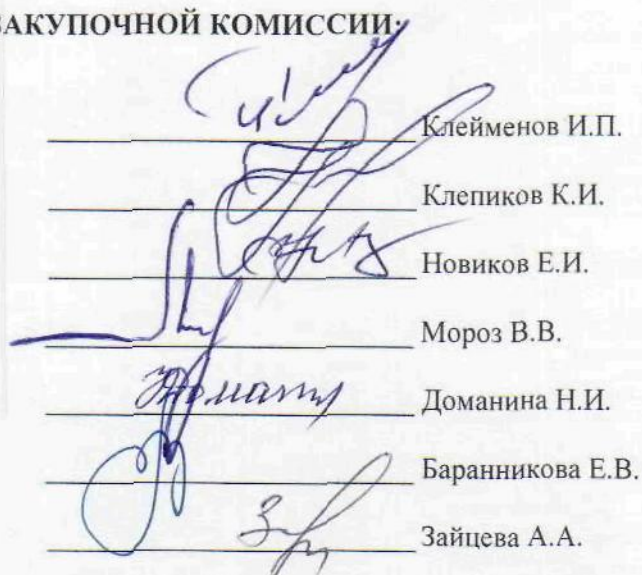 ЗАКУПОЧНОЙ КОМИССИИ:
Клейменов И.П.
Клепиков К.И.
Новиков Е.И.
Мороз В.В.
Доманина Н.И.
Баранникова Е.В.
Зайцева А.А.